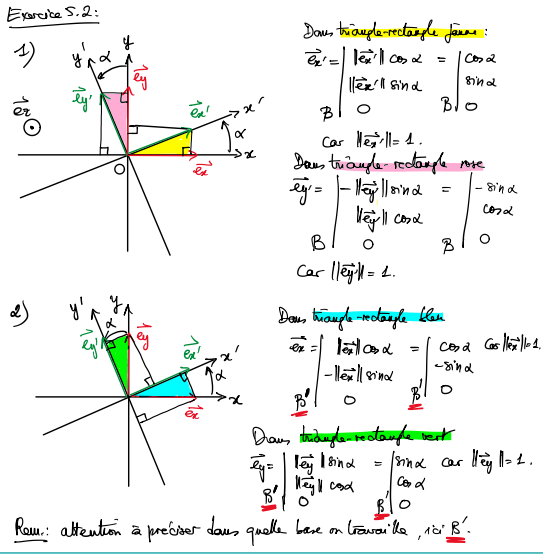 Exercice 5.2:
1)
y' α y
ey' ey
ez
ex' x'
α
O ex x
Dans triangle-rectangle jaune:
ex' = | ||ex'|| cos α = | cos α
||ex'|| sin α sin α
B 0 B 0
Car ||ex'|| = 1.
Dans triangle-rectangle rose
ey' = | -||ey'|| sin α = | - sin α
||ey'|| cos α cos α
B 0 B 0
Car ||ey'|| = 1.
2)
y' y
α
ey' ey
ex' x'
α
ex x
Dans triangle-rectangle bleu
ex = | ||ex|| cos α = | cos α Car ||ex|| = 1.
-||ex|| sin α - sin α
B' 0 B' 0
Dans triangle-rectangle vert
ey = | ||ey|| sin α = | sin α car ||ey|| = 1.
||ey|| cos α cos α
B' 0 B' 0
Rem.: attention à préciser dans quelle base on travaille, ici B'.